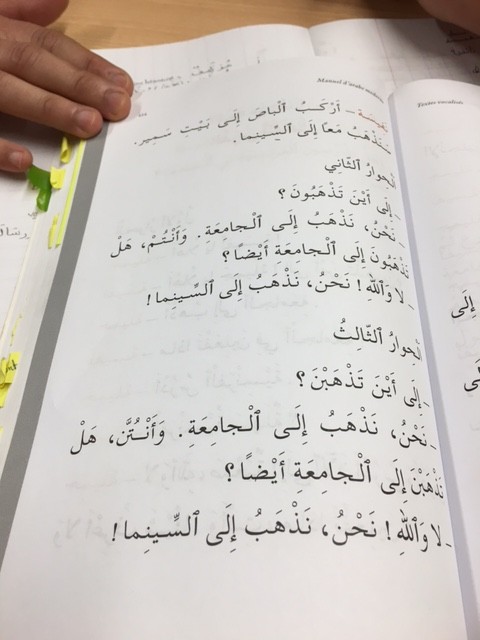 Manuel d'arabe moderne
Textes vocalisés
نَفيسَة – أَرْكَبُ ٱلْباصَ إِلَى بَيْتِ سَمِير.
سَنَذْهَبُ مَعًا إِلَى ٱلسِّينِما.
اَلْحِوارُ ٱلثّانِي
– إِلَى أَيْنَ تَذْهَبُونَ؟
– نَحْنُ، نَذْهَبُ إِلَى ٱلْجامِعَةِ. وَأَنْتُمْ، هَلْ
تَذْهَبُونَ إِلَى ٱلْجامِعَةِ أَيْضًا؟
– لا وَٱللهِ! نَحْنُ، نَذْهَبُ إِلَى ٱلسِّينِما!
اَلْحِوارُ ٱلثّالِثُ
– إِلَى أَيْنَ تَذْهَبْنَ؟
– نَحْنُ، نَذْهَبُ إِلَى ٱلْجامِعَة. وَأَنْتُنَّ، هَلْ
تَذْهَبْنَ إِلَى ٱلْجامِعَةِ أَيْضًا؟
– لا وَٱللهِ! نَحْنُ، نَذْهَبُ إِلَى ٱلسِّينِما!
إِلَى